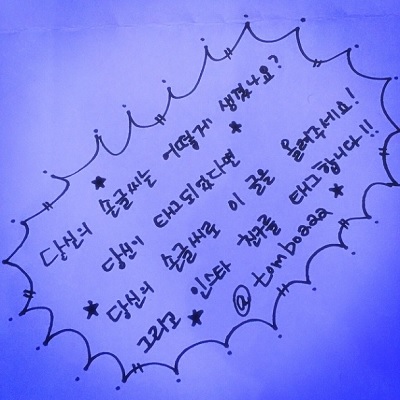 당신의 손글씨는 어떻게 생겼나요?
당신이 태그되었다면
당신의 손글씨로 이 글을 올려주세요!
그리고 인스타 친구를 태그합니다!!
@tomboaaa